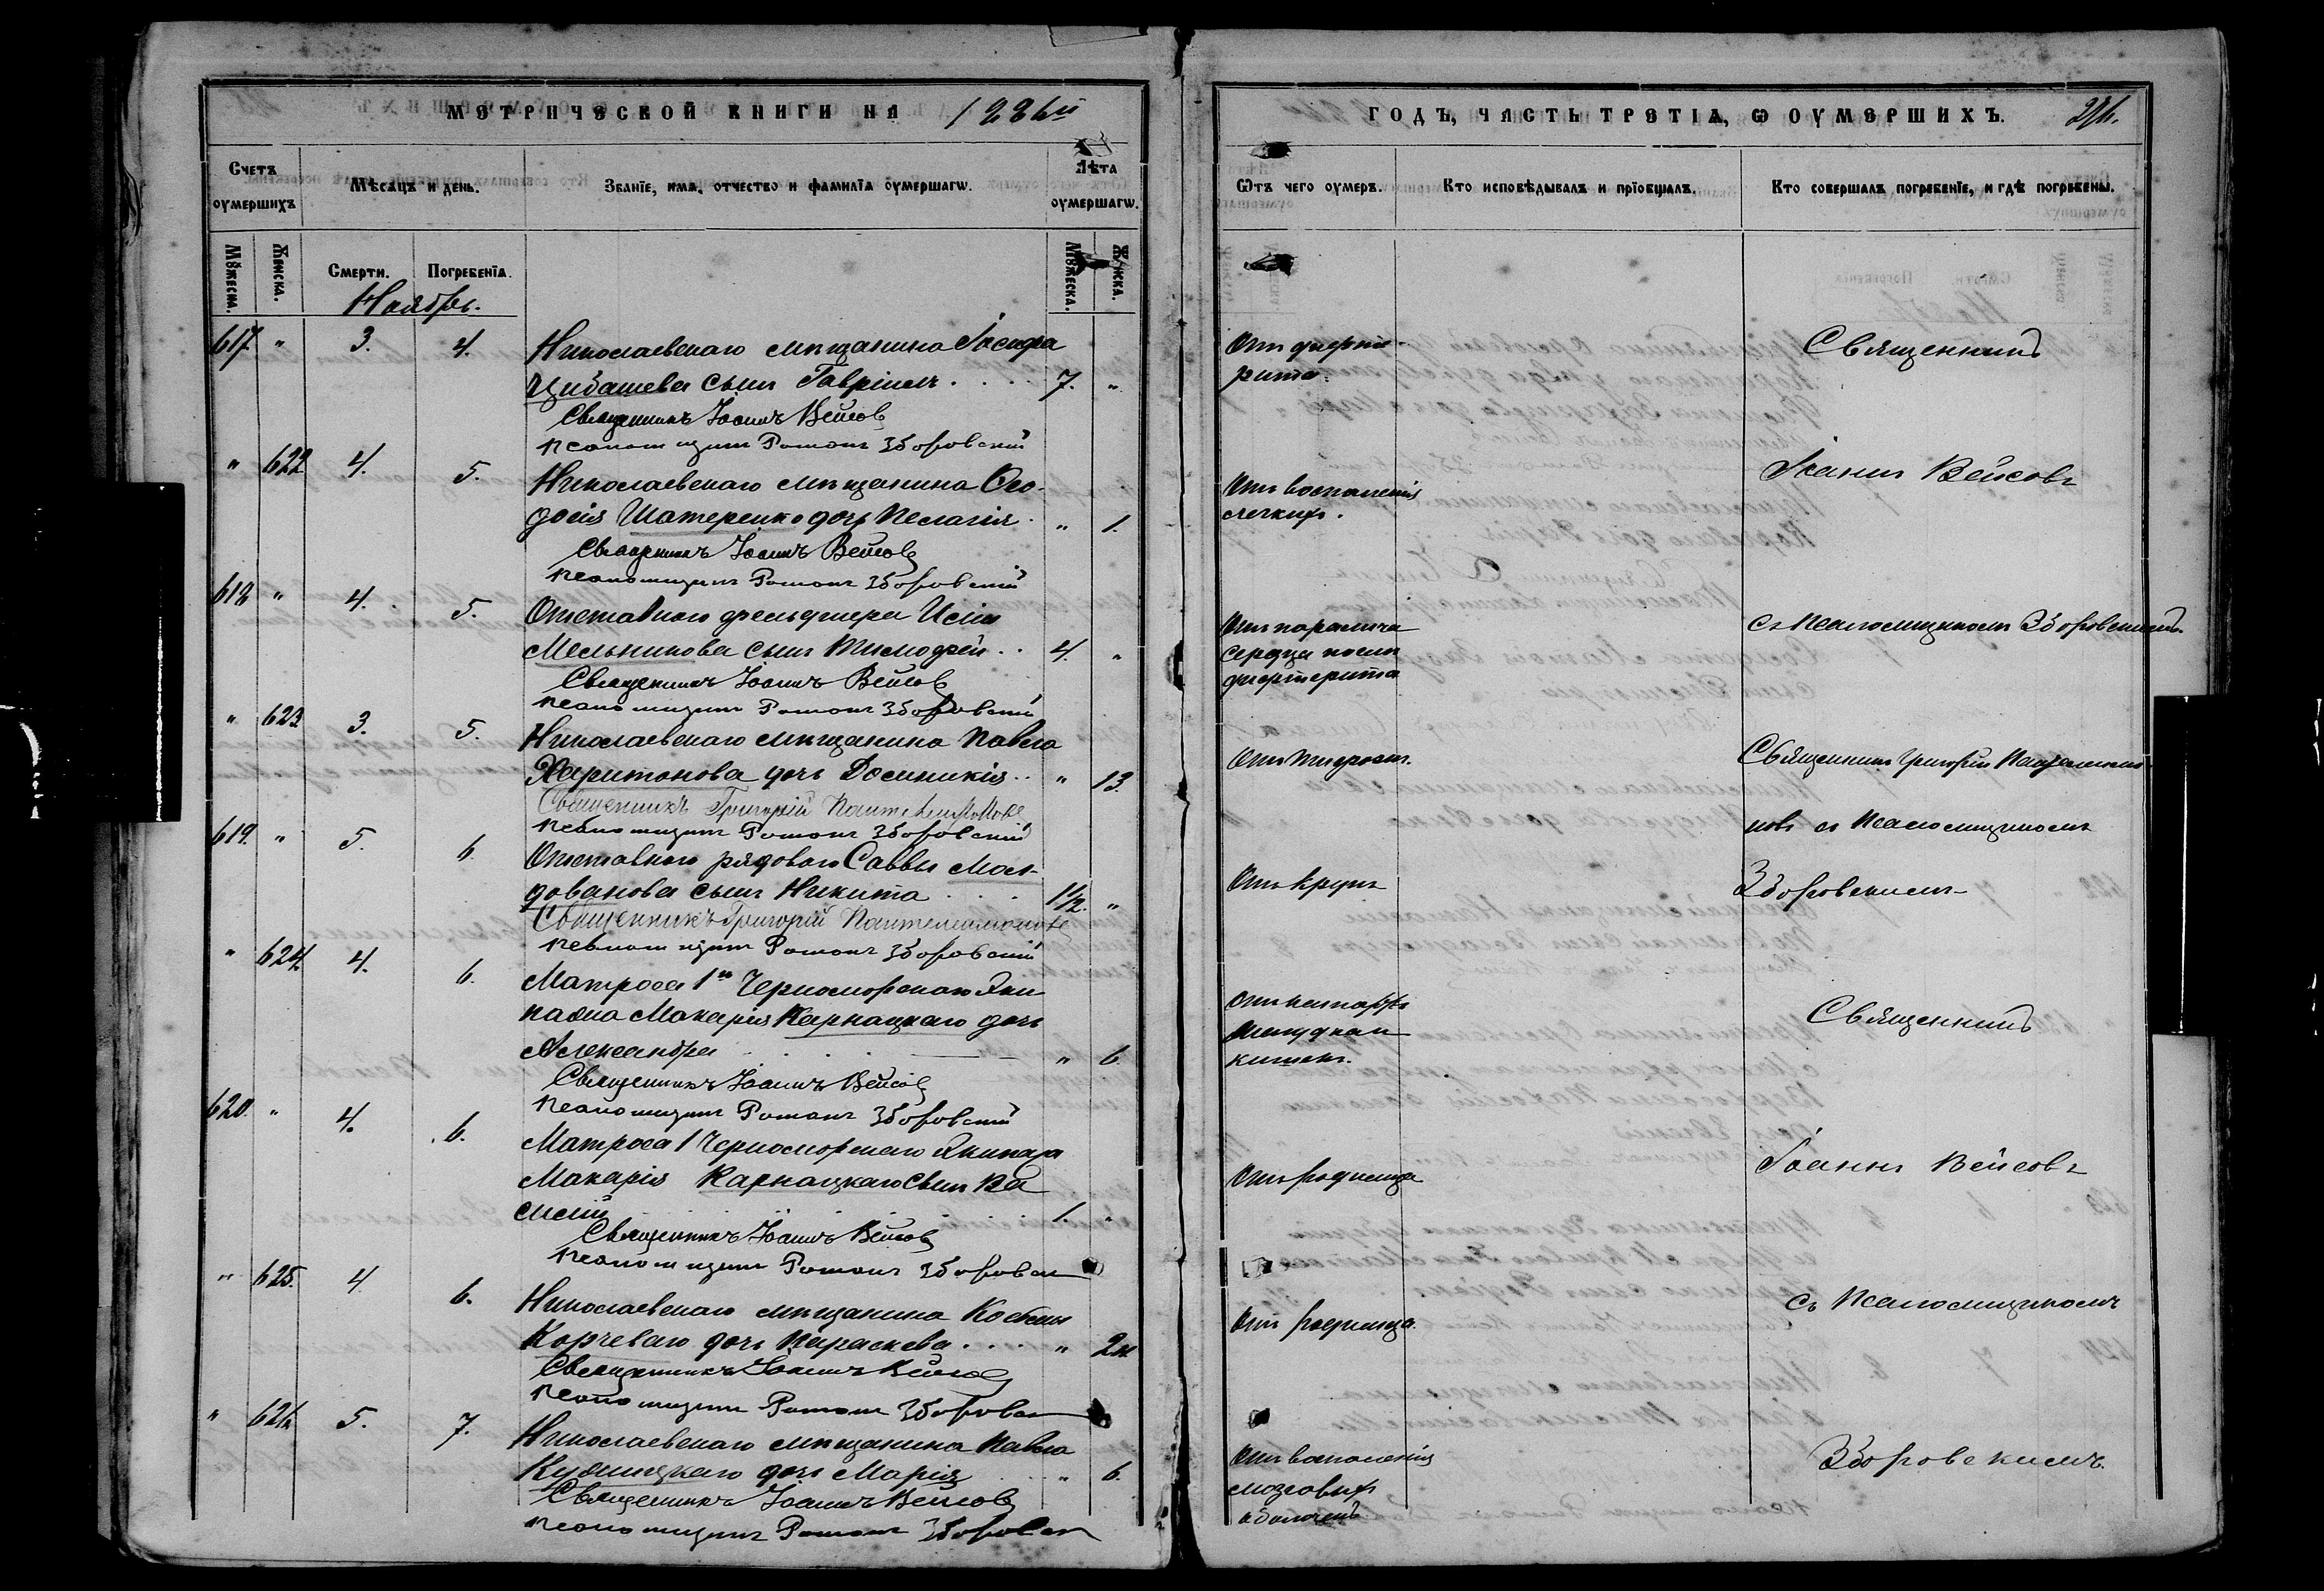 МЕТРИЧЕСКОЙ КНИГИ НА 1886й
Счетъ оумершихъ
Мѣсяцъ и день.
Званїе, имя, отчество и фамилїа оумершагѡ.
Лѣта оумершагѡ.
Мꙋжеска. Женска. Смерти. Погребенїа. Мꙋжеска. Женска.
Ноябрь.
617. " 3. 4. Николаевскаго мѣщанина Іосифа
Цибашева сынъ Гавріилъ . . . 7. "
Священникъ Іоаннъ Вейсовъ
Псаломщикъ Романъ Зборовскій
" 622 4. 5. Николаевскаго мѣщанина Ѳео-
досія Шатеренко дочь Пелагія . " 1.
Священникъ Іоаннъ Вейсовъ
Псаломщикъ Романъ Зборовскій
618 " 4. 5. Отставного фельдшера Исіи
Мельникова сынъ Тимофей . . 4. "
Священникъ Іоаннъ Вейсовъ
Псаломщикъ Романъ Зборовскій
" 623 3. 5. Николаевскаго мѣщанина Павла
Харитонова дочь Домникія . . " 13.
Священникъ Григорій Пантелимоновъ
Псаломщикъ Романъ Зборовскій
619. " 5. 6. Отставного рядового Саввы Мол-
дованова сынъ Никита . . . 1/2. "
Священникъ Григорій Пантелимоновъ
Псаломщикъ Романъ Зборовскій
" 624. 4. 6. Матроса 1го Черноморскаго Эки-
пажа Макарія Карнацкаго дочь
Александра . . . " 6.
Священникъ Іоаннъ Вейсовъ
Псаломщикъ Романъ Зборовскій
620. " 4. 6. Матроса 1 Черноморскаго Экипажа
Макарія Карнацкаго сынъ Ва
силій . . . 1. "
Священникъ Іоаннъ Вейсовъ
Псаломщикъ Романъ Зборовск
" 625. 4. 6. Николаевскаго мѣщанина Космы
Корчеваго дочь Параскева . . . " 2м.
Священникъ Іоаннъ Вейсовъ
Псаломщикъ Романъ Зборовск
" 626. 5. 7. Николаевскаго мѣщанина Павла
Кудлицкаго дочь Марія " 6.
Священникъ Іоаннъ Вейсовъ
Псаломщикъ Романъ Зборовск
ГОДЪ, ЧАСТЬ ТРЕТІА, Ѡ ОУМЕРШИХЪ.
Ѿтъ чего оумеръ.
Кто исповѣдывалъ и прїобщалъ.
Кто совершалъ погребенїе, и гдѣ погребены.
Отъ дифте-
рита.
Священникъ
Отъ воспаленія
легкихъ.
Іоаннъ Вейсовъ
Отъ паралича
сердца послѣ
дифтерита
съ Псаломщикомъ Зборовскимъ.
Отъ тифозн.
Священникъ Григорій Пантелимо-
новъ съ Псаломщикомъ
Отъ крупъ
Зборовскимъ
Отъ катарръ
желудка и
кишекъ.
Священникъ
Отъ родимца
Іоаннъ Вейсовъ
Отъ родимца.
съ Псаломщикомъ
Отъ воспаленія
мозговыхъ
оболочекъ
Зборовскимъ.